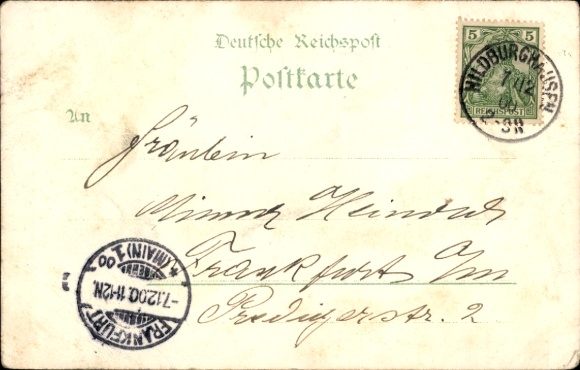 Deutsche Reichspost
Postkarte
5 5
REICHSPOST
HILDBURGHAUSEN
7 12
00
An
Fräulein
Minna Heinrich
Frankfurt a/m
Predigerstr. 2
FRANKFURT (MAIN) 1
-7.12.00. 11-12N.